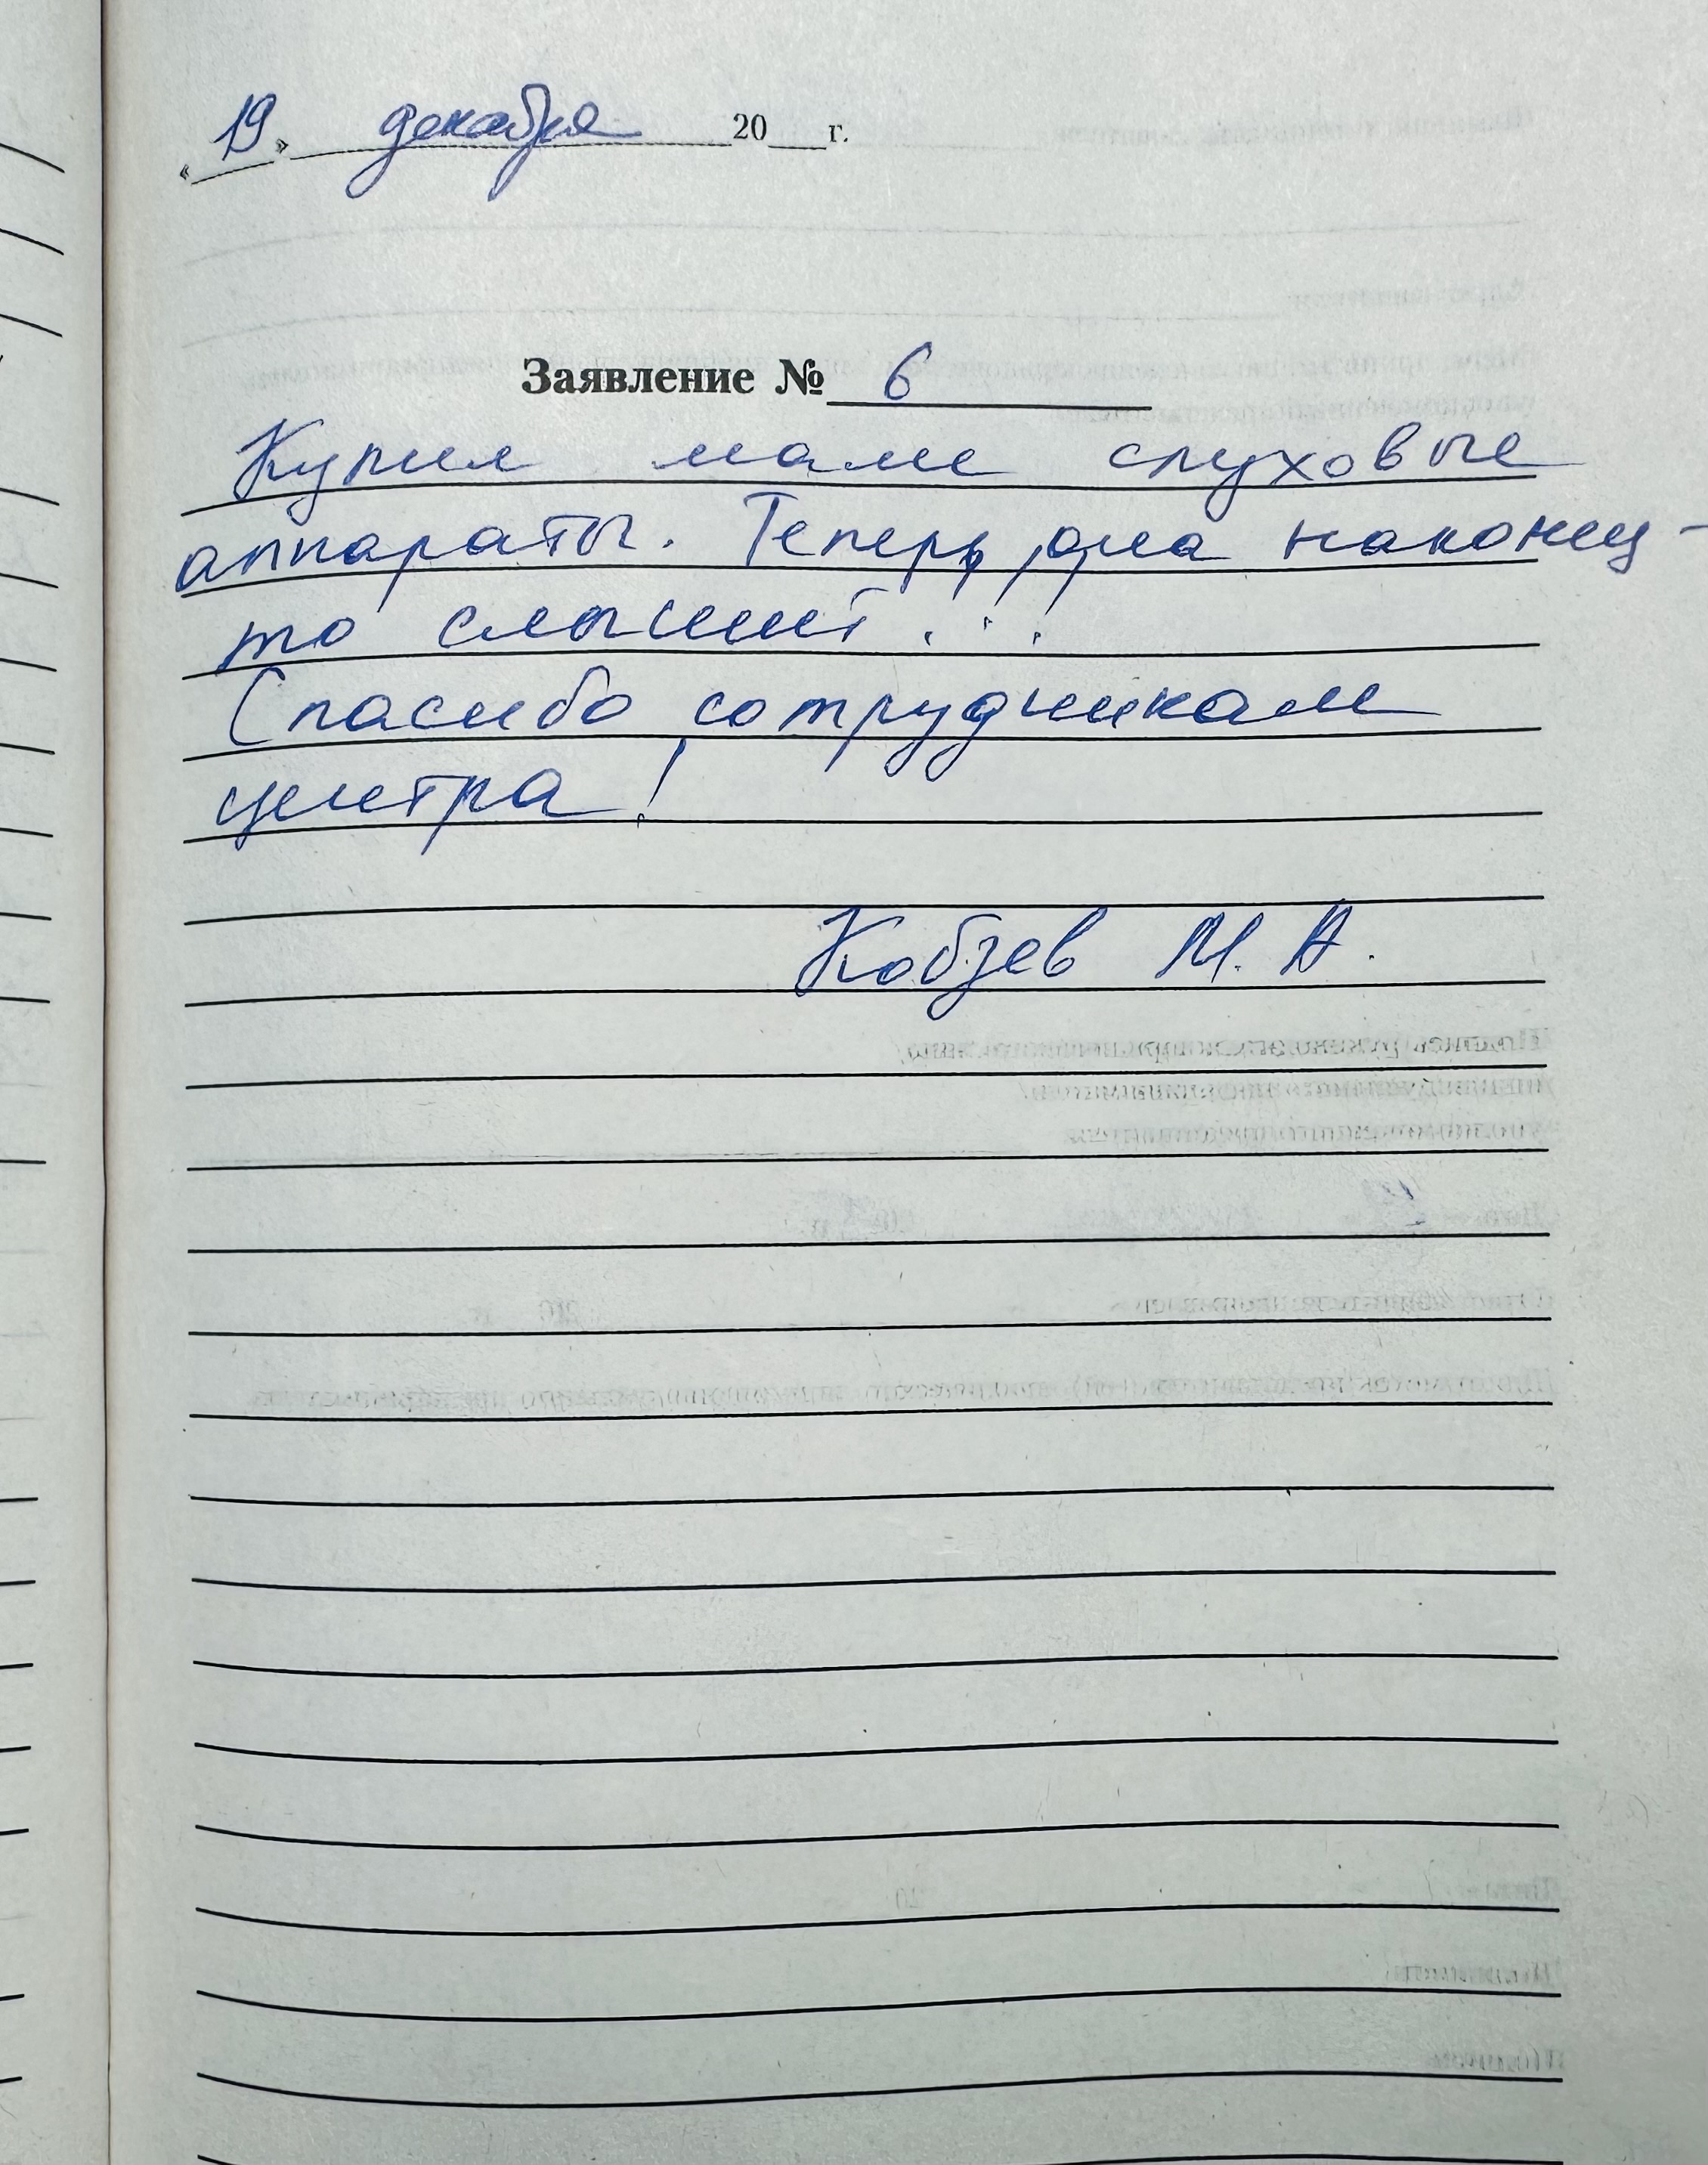 «19» декабря 20___г.
Заявление № 6
Купил маме слуховые
аппараты. Теперь она наконец-
то слышит!!!
Спасибо сотрудникам
центра!
Кобзев М. А.